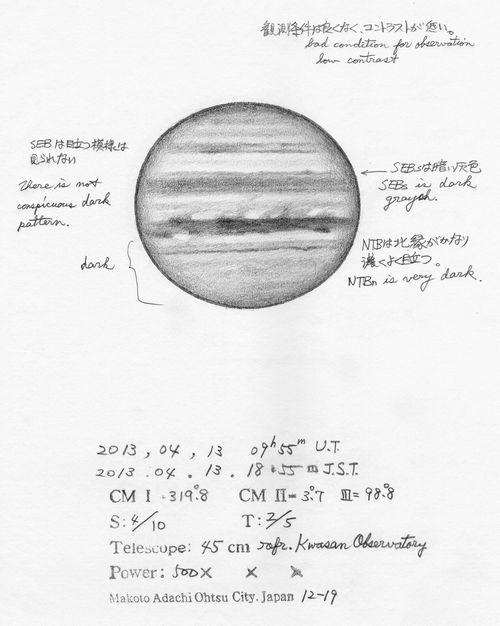 観測条件は良くなく、コントラストが低い。
bad condition for observation
low contrast
SEBは目立つ模様は
見られない
There is not
conspicuous dark
pattern.
dark
← SEBsは暗い灰色
SEBs is dark
grayish.
NTBは北縁がかなり
濃くよく目立つ。
NTBn is very dark.
2013, 04, 13 09h 55m U.T.
2013. 04. 13. 18 : 55 m J.S.T.
CM I = 319.°8 CM II = 3.°7 III = 98.°8
S: 4/10 T: 2/5
Telescope: 45 cm refr. Kwasan Observatory
Power: 500× × ×
Makoto Adachi Ohtsu City. Japan 12-19